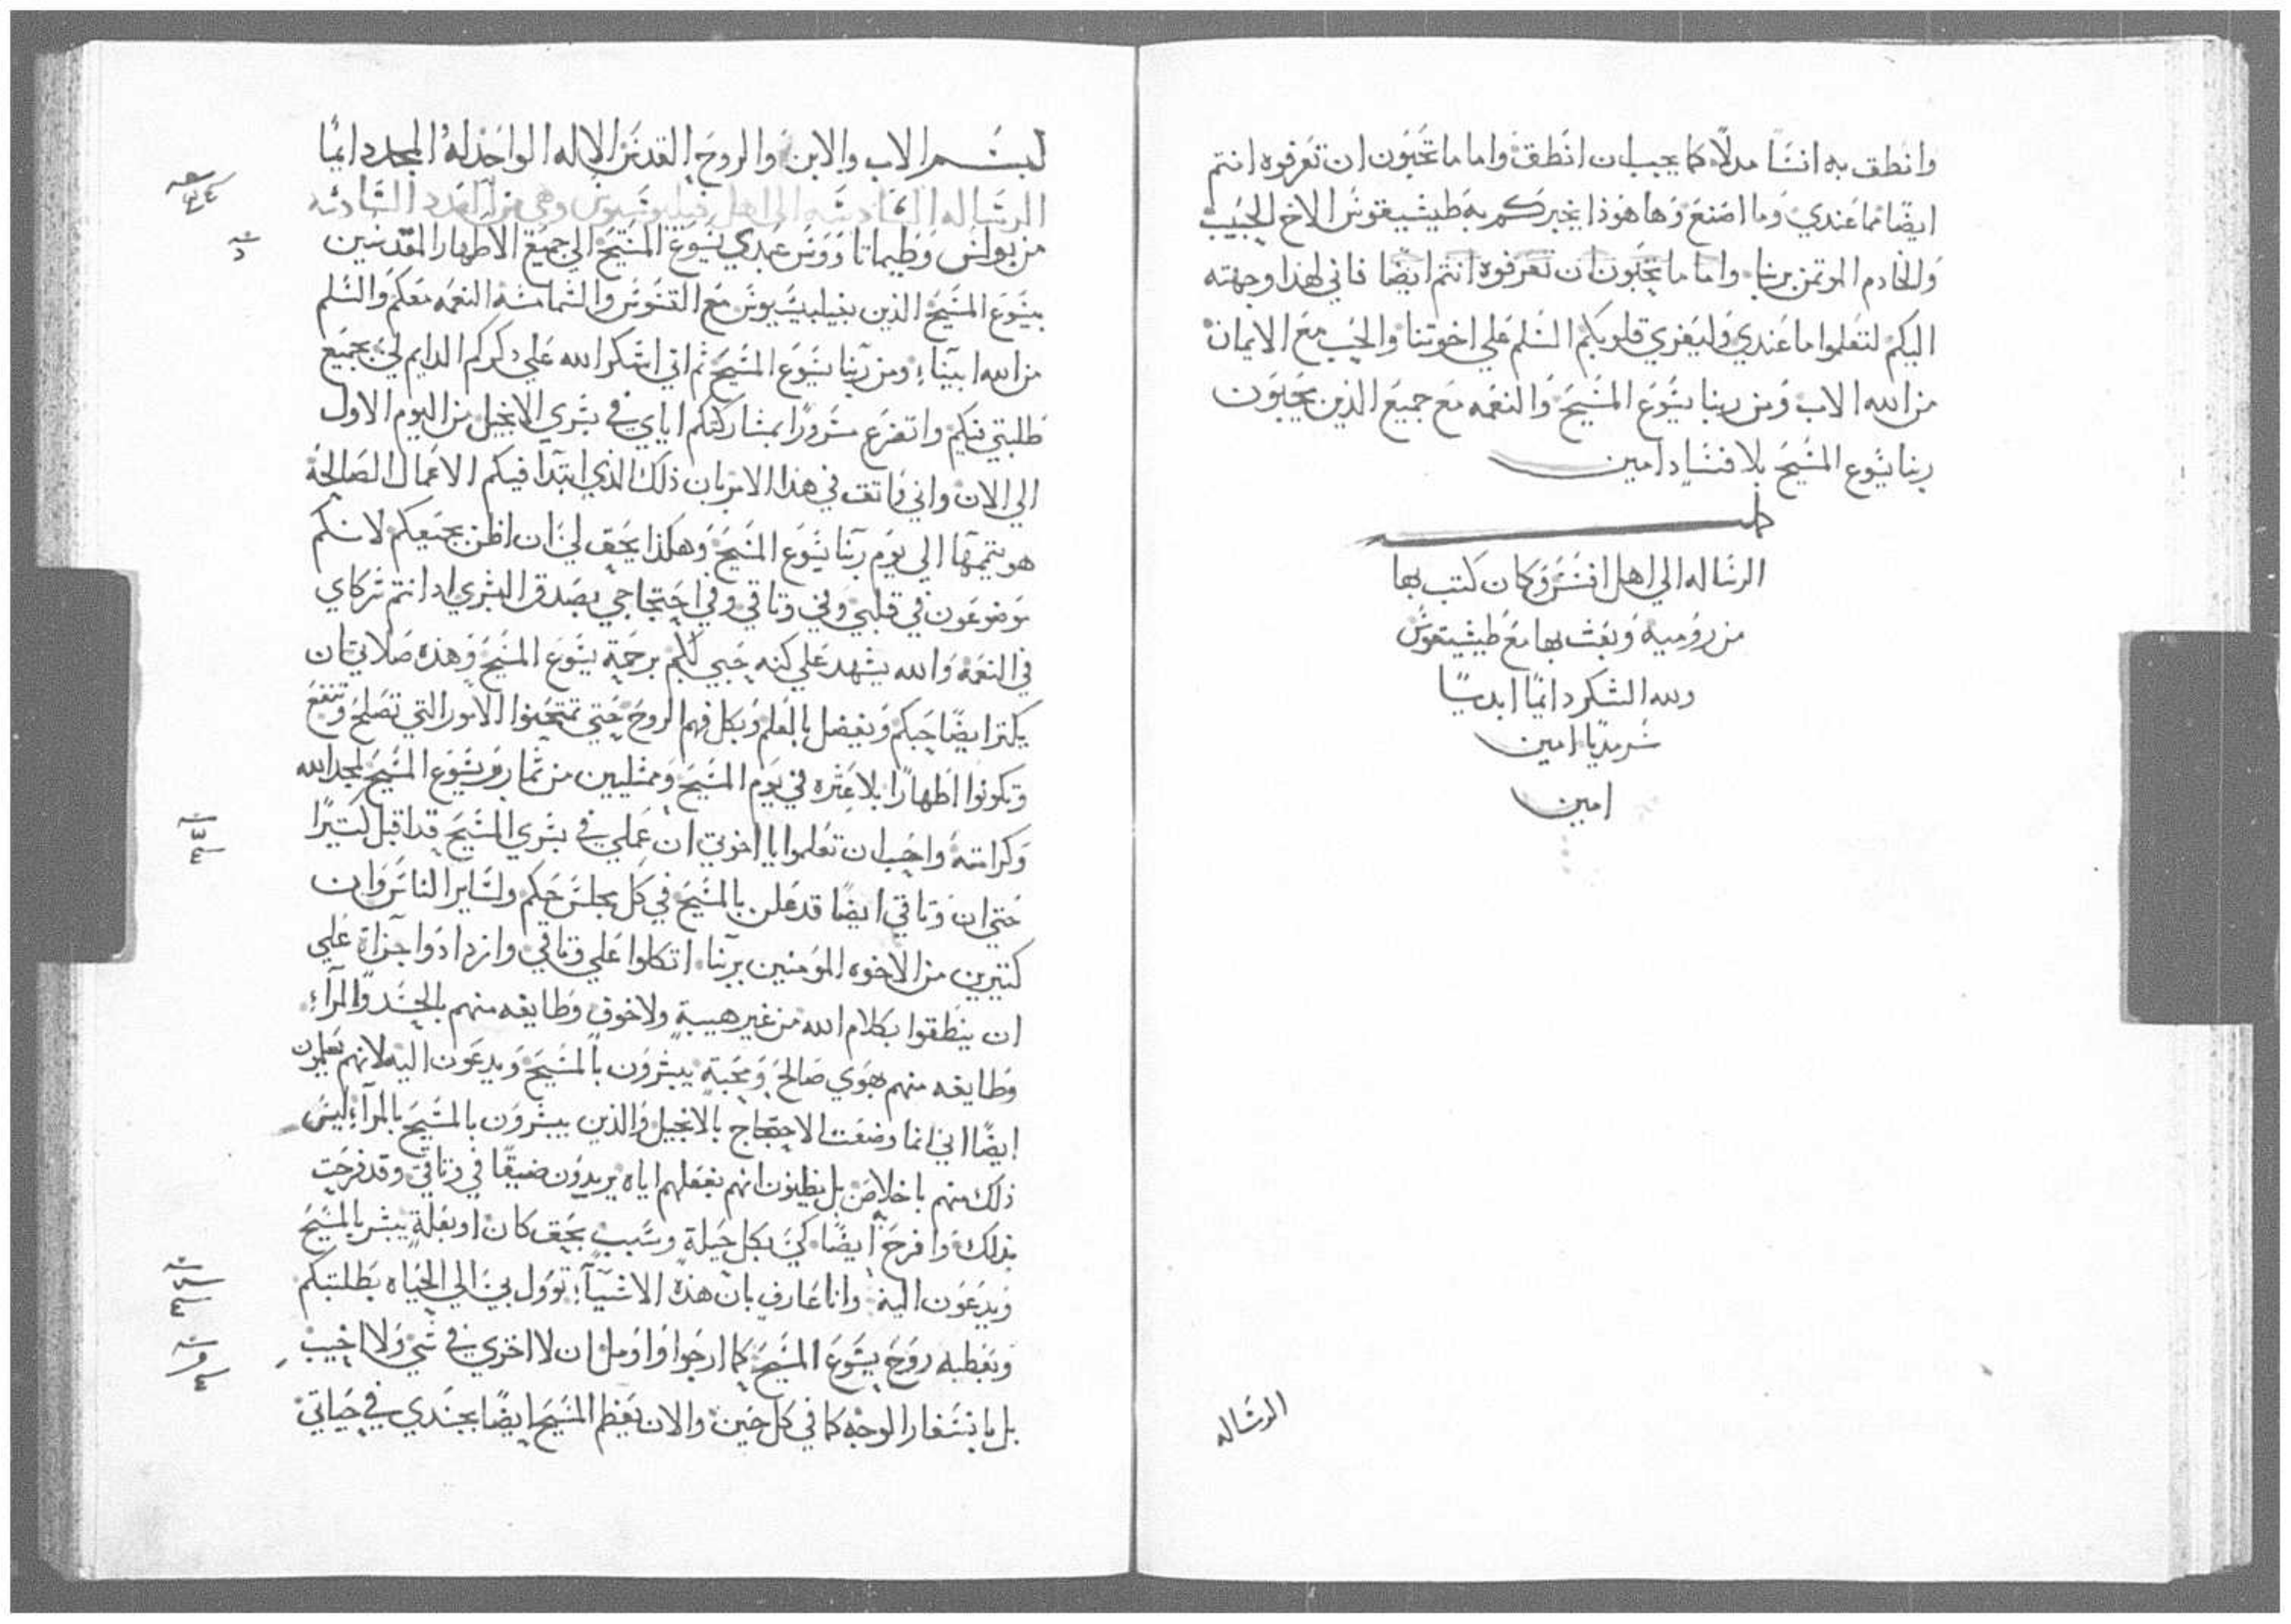 وانطق به انسًا مدلًا كما يجب ان انطق واما ما تحبون ان تعرفوه انتم
ايضًا مما عندي وما اصنع وها هوذا يخبركم به طيشيقوس الاخ الحبيب
والخادم الموتمن بربنا واما ما تحبون ان تعرفوه انتم ايضًا فاني لهذا وجهته
اليكم لتعلموا ما عندي وليعزي قلوبكم السلم علي اخوتنا والحب مع الايمان
من الله الاب ومن ربنا يسوع المسيح والنعمه مع جميع الذين يحبون
ربنا يسوع المسيح بلا فساد امين
الرساله الي اهل افسس وكان كتب بها
من روميه وبعث بها مع طيشيقوس
ولله الشكر دايمًا ابديًا
سرمديًا امين
امين
الرساله
بسم الاب والابن والروح القدس الاله الواحد له المجد دايمًا
الرساله السادسه الي اهل فيليبسيوس وهي من العدد السادسه
من بولس وطيماتاووس عبدي يسوع المسيح الي جميع الاطهار المقدسين
بيسوع المسيح الذين بفيلبسيوس مع القسوس والشمامسه النعمه معكم والسلم
من الله ابينا ومن ربنا يسوع المسيح ثم اني اشكر الله علي ذكركم الدايم لي بجميع
طلبتي فيكم واتضرع مسرورًا بمشاركتكم اياي في بشري الانجيل من اليوم الاول
الي الان واني واتق في هذا الامر بان ذلك الذي ابتدا فيكم الاعمال الصالحه
هو يتممها الي يوم ربنا يسوع المسيح وهكذا يحق لي ان اظن بجميعكم لانكم
موضوعون في قلبي وفي وتاقي وفي احتجاجي بصدق البشري اد انتم شركاي
في النعمه والله يشهد علي كنه حبي لكم برحمة يسوع المسيح وهذه صلاتي ان
يكتر ايضًا حبكم ويفضل بالعلم وبكل فهم الروح حتي تمتحنوا الامور التي تصلح وتنفع
وتكونوا اطهارًا بلا عثره في يوم المسيح وممتليين من ثمار بر يسوع المسيح لمجد الله
وكرامته واحب ان تعلموا يا اخوتي ان عملي في بشري المسيح قد اقبل كتيرًا
حتي ان وتاقي ايضًا قد علن بالمسيح في كل مجلس حكم ولساير الناس وان
كتيرين من الاخوه المومنين بربنا اتكلوا علي وتاقي وازدادوا جراة علي
ان ينطقوا بكلام الله من غير هيبة ولا خوف وطايفه منهم بالحسد والمرآء
وطايفه منهم بهوي صالح ومحبة يبشرون بالمسيح ويدعون اليه لانهم يعلمون
ايضًا اني انما وضعت الاحتجاج بالانجيل والذين يبشرون بالمسيح بالمرآء ليس
ذلك منهم باخلاص بل يظنون انهم بفعلهم اياه يريدون ضيقًا في وتاقي وقد فرحت
بذلك وافرح ايضًا كي بكل حيلة وسبب بحق كان او بعلة يبشر بالمسيح
ويدعون اليه وانا عارف بان هذه الاشيآء توول بي الي الحياه بطلبتكم
وبعطيه روح يسوع المسيح كما ارجوا واومل ان لا اخزي في شي ولا اخيب
بل باسفار الوجه كما في كل حين والان يعظم المسيح ايضًا بجسدي في حياتي